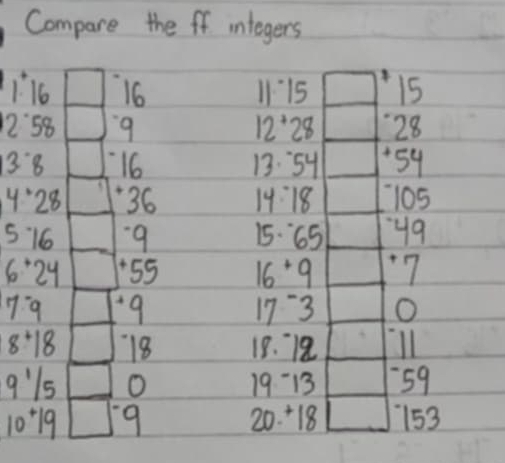 Compare the ff integers
1. +16 -16
2. -58 -9
3. -8 -16
4. +28 +36
5 -16 -9
6. +24 +55
7. -9 +9
8 +18 -18
9 +15 0
10 +19 -9
11. -15 +15
12 +28 -28
13. -54 +54
14. -18 -105
15. -65 -49
16 +9 +7
17. -3 0
18. -12 -11
19. -13 -59
20. +18 -153